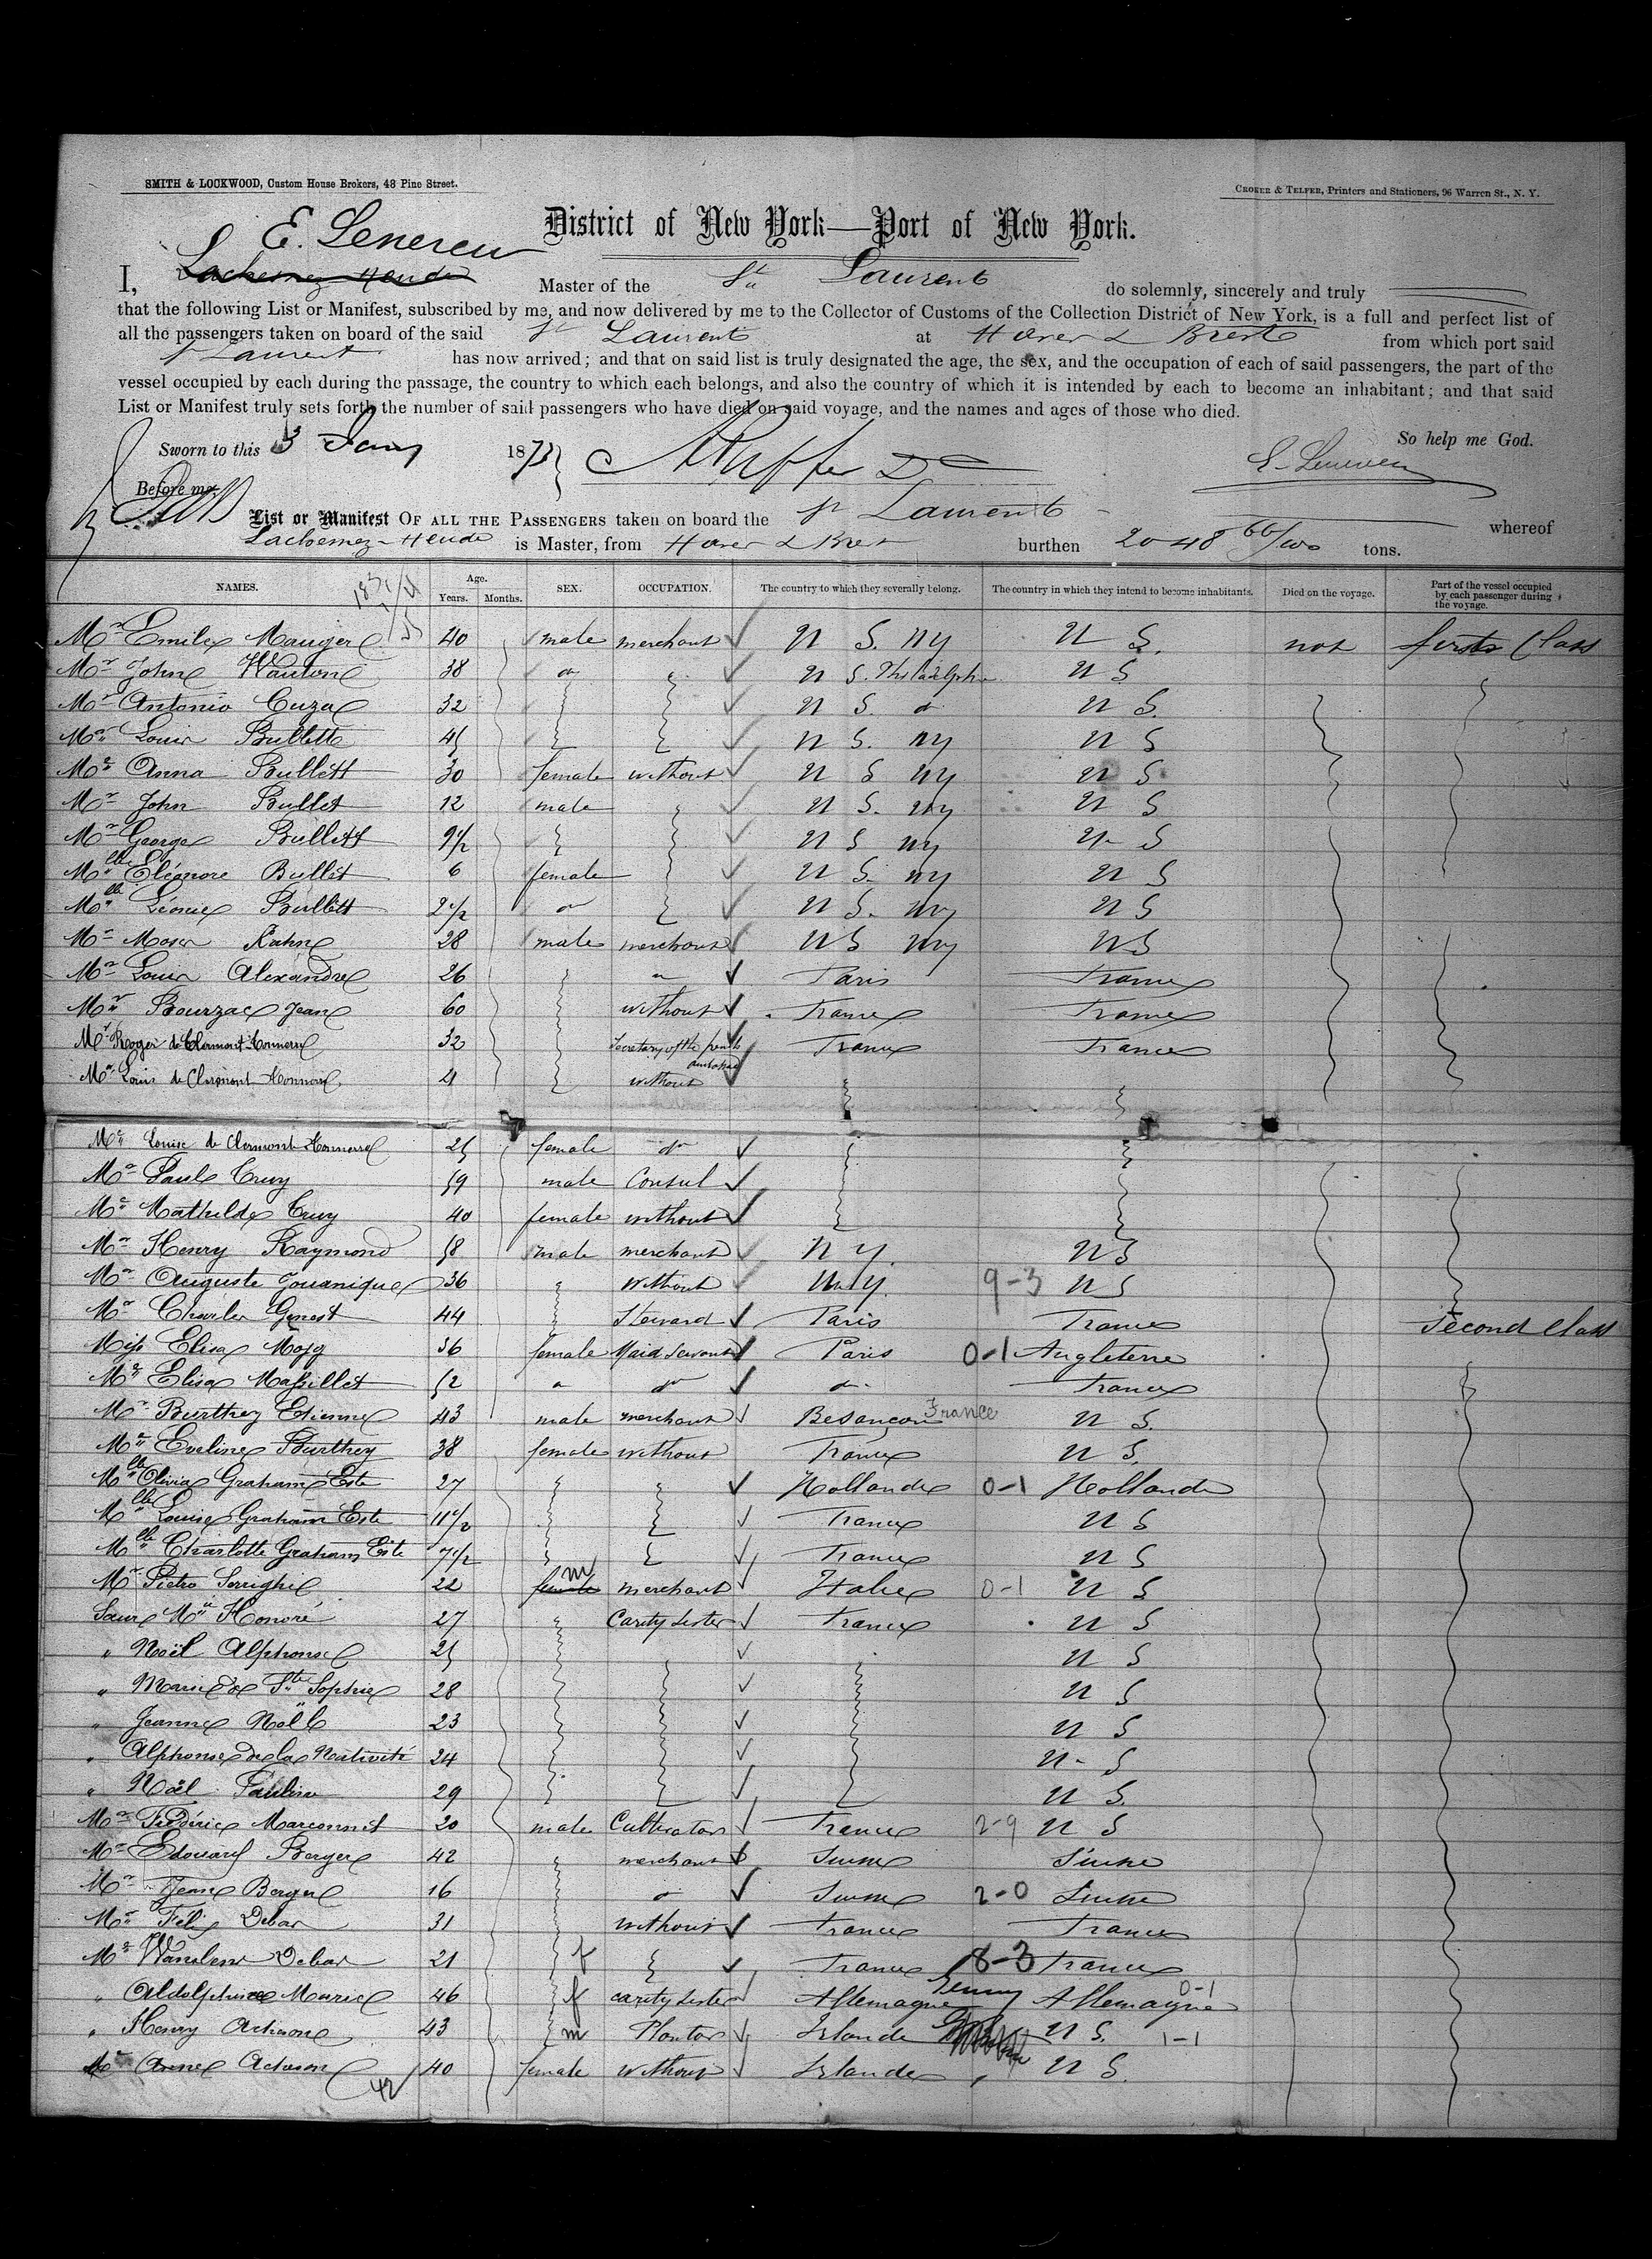 SMITH & LOCKWOOD, Custom House Brokers, 48 Pine Street.
CROKER & TELFER, Printers and Stationers, 96 Warren St., N. Y.
District of New York—Port of New York.
E. Lenereu
I, Master of the St Laurent do solemnly, sincerely and truly
that the following List or Manifest, subscribed by me, and now delivered by me to the Collector of Customs of the Collection District of New York, is a full and perfect list of
all the passengers taken on board of the said St Laurent at Havre & Brest from which port said
St Laurent has now arrived; and that on said list is truly designated the age, the sex, and the occupation of each of said passengers, the part of the
vessel occupied by each during the passage, the country to which each belongs, and also the country of which it is intended by each to become an inhabitant; and that said
List or Manifest truly sets forth the number of said passengers who have died on said voyage, and the names and ages of those who died.
So help me God.
Sworn to this 3 Jany 1873
Before me,
List or Manifest OF ALL THE PASSENGERS taken on board the St Laurent whereof
is Master, from Havre & Brest burthen 2048 66/100 tons.
NAMES. Age. Years. Months. SEX. OCCUPATION. The country to which they severally belong. The country in which they intend to become inhabitants. Died on the voyage. Part of the vessel occupied by each passenger during the voyage.
Mr Emile Mauger 40 male merchant U S. NY U S. not first Class
Mr John 38 do U S. Philadelphia U S
Mr Antonio Cuza 32 U S. do U S.
Mr Louis Bullett 45 U S. NY U S
Me Anna Bullett 30 female without U S NY U S
Mr John Bullet 12 male U S. NY U S
Mr George Bullett 9 1/2 U S NY U S
Mlle Eléonore Bullit 6 female U S. NY U S
Mlle Léonie Bullitt 2 1/2 do U S. NY U S
Mr Moser Kahn 28 male merchant US NY US
Mr Louis Alexandre 26 do Paris France
Mr Bourzac Jean 60 without France France
Mr Roger de Clermont Tonnerre 32 Secretary of the french ambassad France France
Mr Louis de Clermont Tonnerre 4 without
Me Louise de Clermont Tonnerre 25 female do
Mr Paul Cruy 59 male Consul
Me Mathilde Cruy 40 female without
Mr Henry Raymond 58 male merchant N Y. US
Mr Auguste Jouanique 36 without N.Y. 9-3 U S
Mr Charles Genest 44 Steward Paris France Second Class
Miss Elisa Mojg 36 female Maid Servant Paris 0-1 Angleterre
Me Elisa Massillet 52 do do do France
Mr Burthey Etienne 43 male merchant Besançon France U S.
Me Eveline Burthey 38 female without France U S.
Mlle Olivia Graham Este 27 Hollande 0-1 Hollande
Mlle Louise Graham Este 11 1/2 France U S
Mlle Charlotte Graham Este 7 1/2 France U S
Mr Pietro 22 female m merchant Italie 0-1 U S
Sœur Me Honoré 27 Carity Sister France U S
" Noël Alphonse 25 U S
" Marie de Ste Sophie 28 U S
" Jeanne Noëll 23 U S
" Alphonse de la Nativité 24 U S
" Noël Pauline 29 U S.
Mr Frédéric Marconnet 20 male Cultivator France 2-9 U S
Mr Edouard Berger 42 merchant Suisse Suisse
Mr Jean Berger 16 do Suisse 2-0 Suisse
Mr Felix Debar 31 without France France
Me Debar 21 f France 8-3 France
" Aldolphine Marie 46 f carity Sister Allemagne Germy Allemagne 0-1
" Henry Acheson 43 m Planter Irlande U S. 1-1
Me Anne Acheson 40 female without Irlande U S.
42